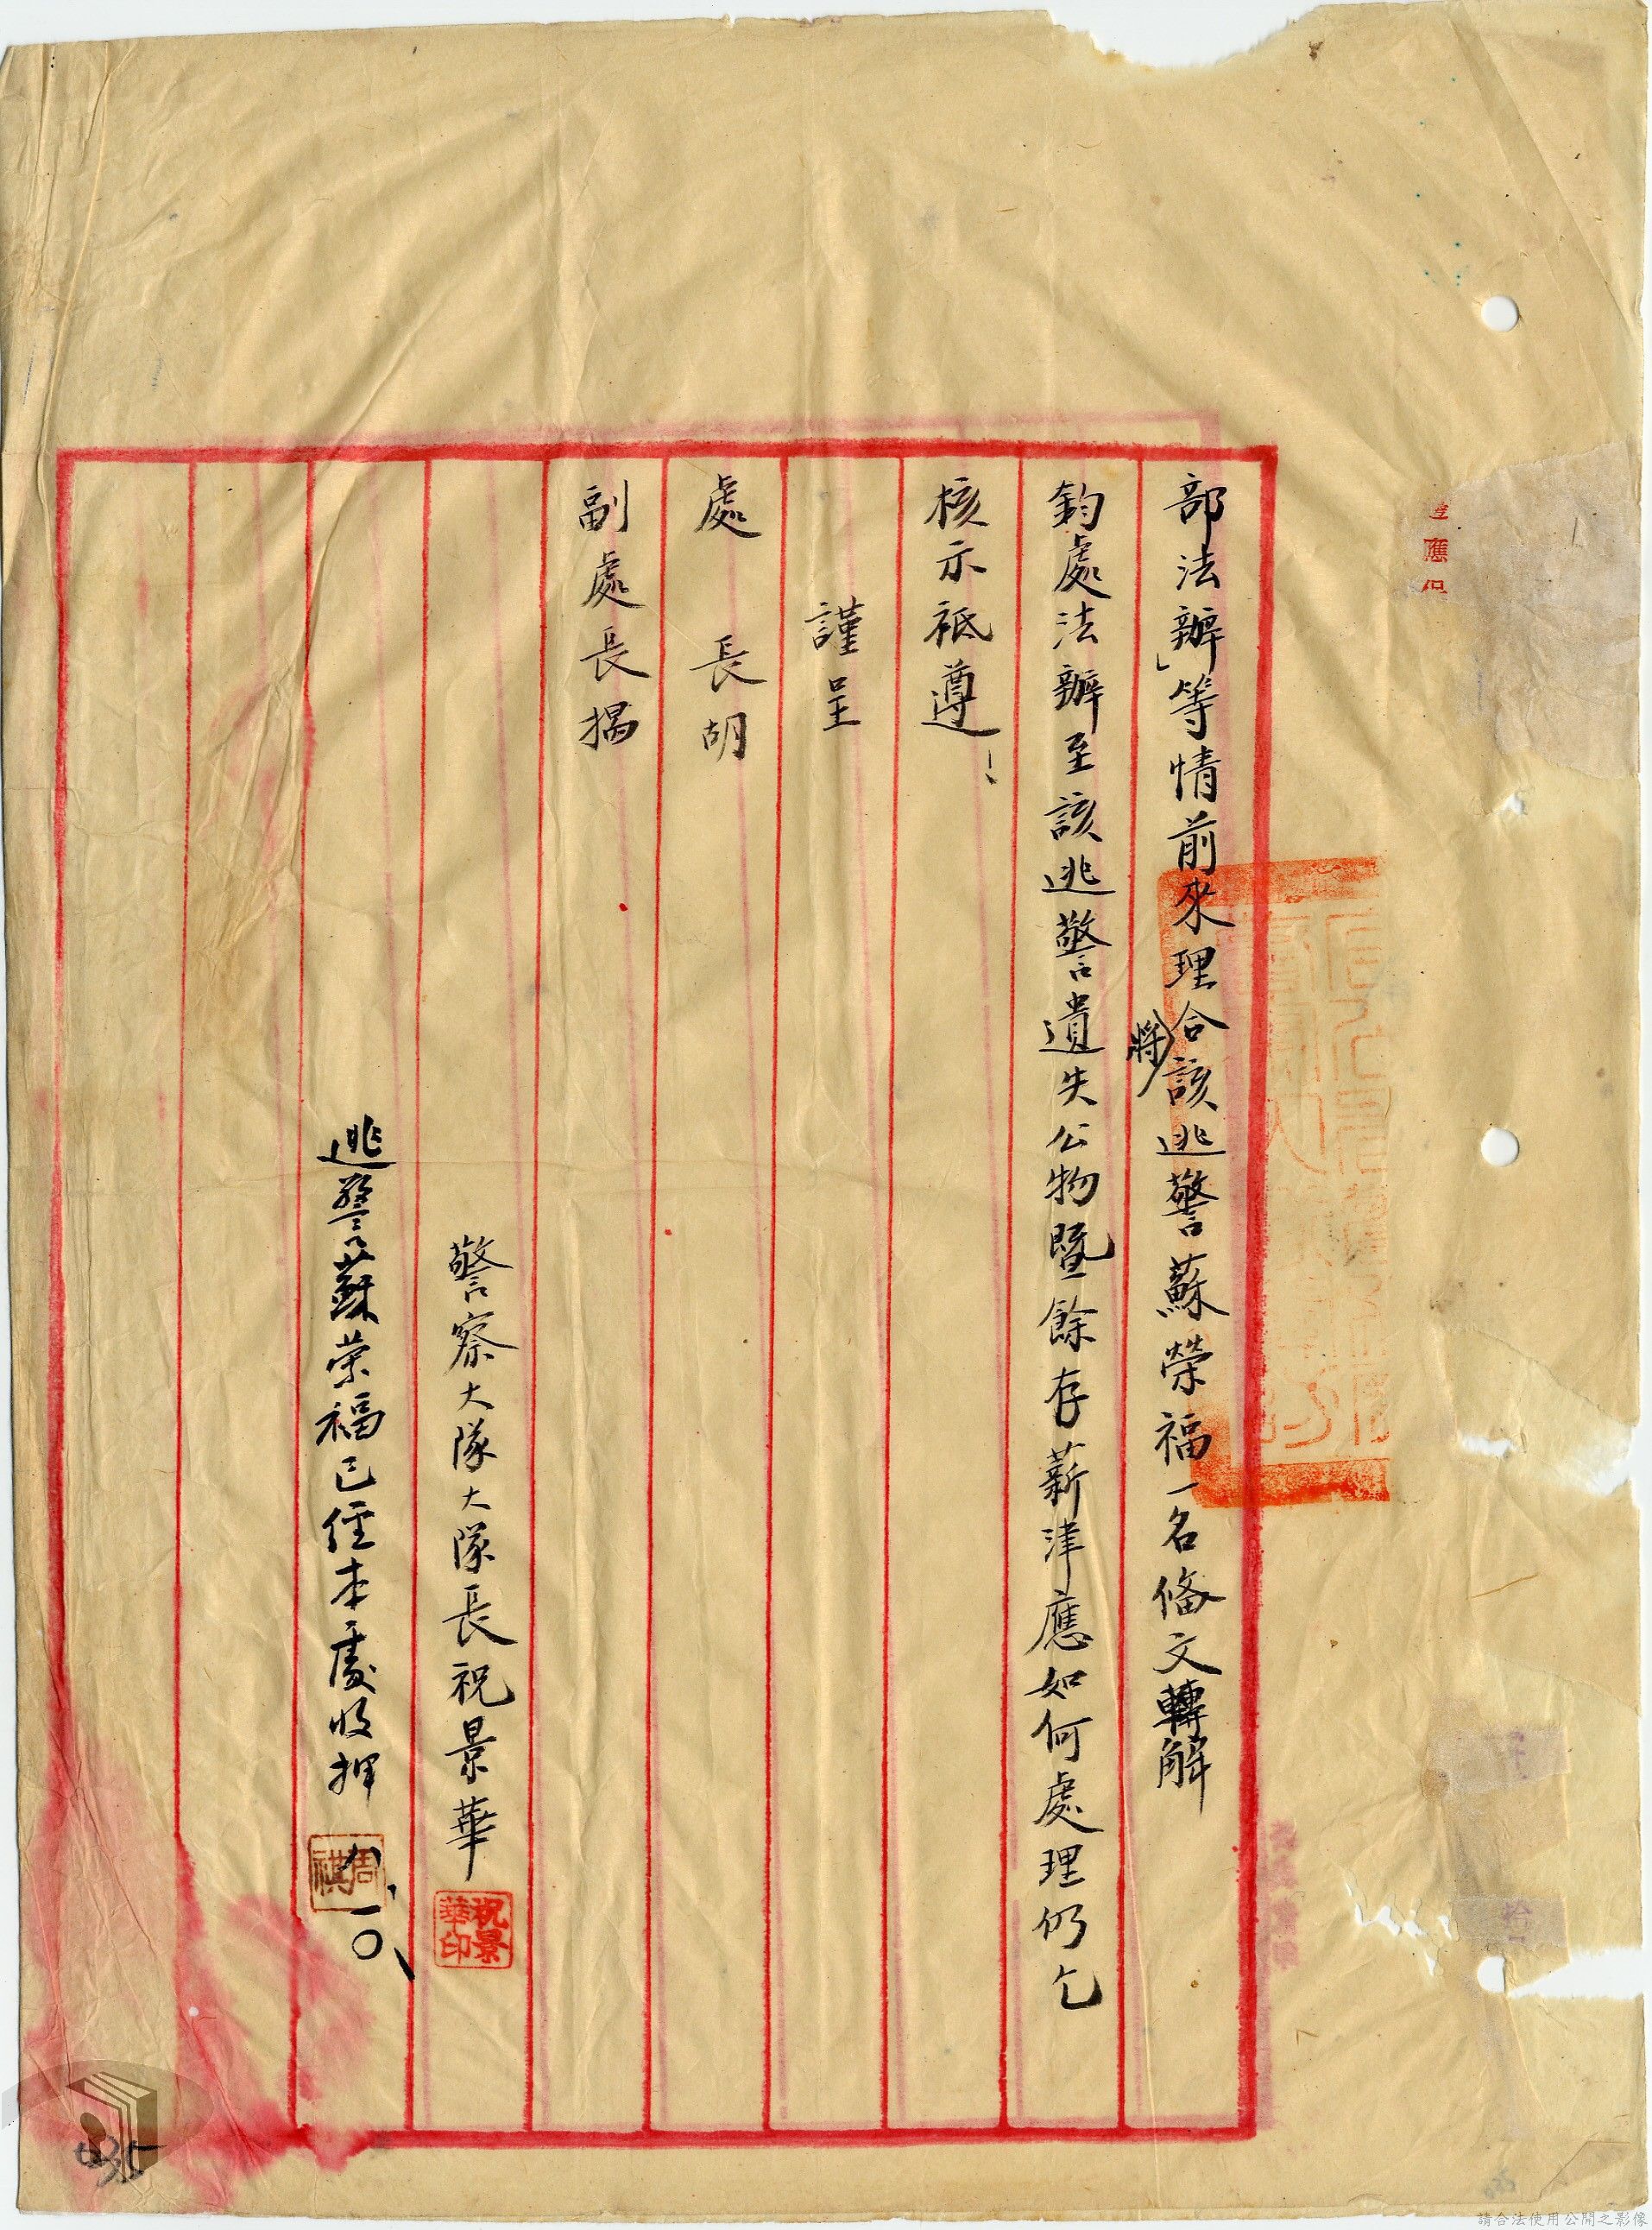 部法辦」等情前來理合(將)該逃警蘇榮福一名備文轉解
鈞處法辦至該逃警遺失公物暨餘存薪津應如何處理仍乞
核示祗遵！
謹呈
處長胡
副處長揭
警察大隊大隊長祝景華
祝景華印
逃警蘇荣福已經本處收押
周祺
八、一〇、
035
請合法使用公開之影像